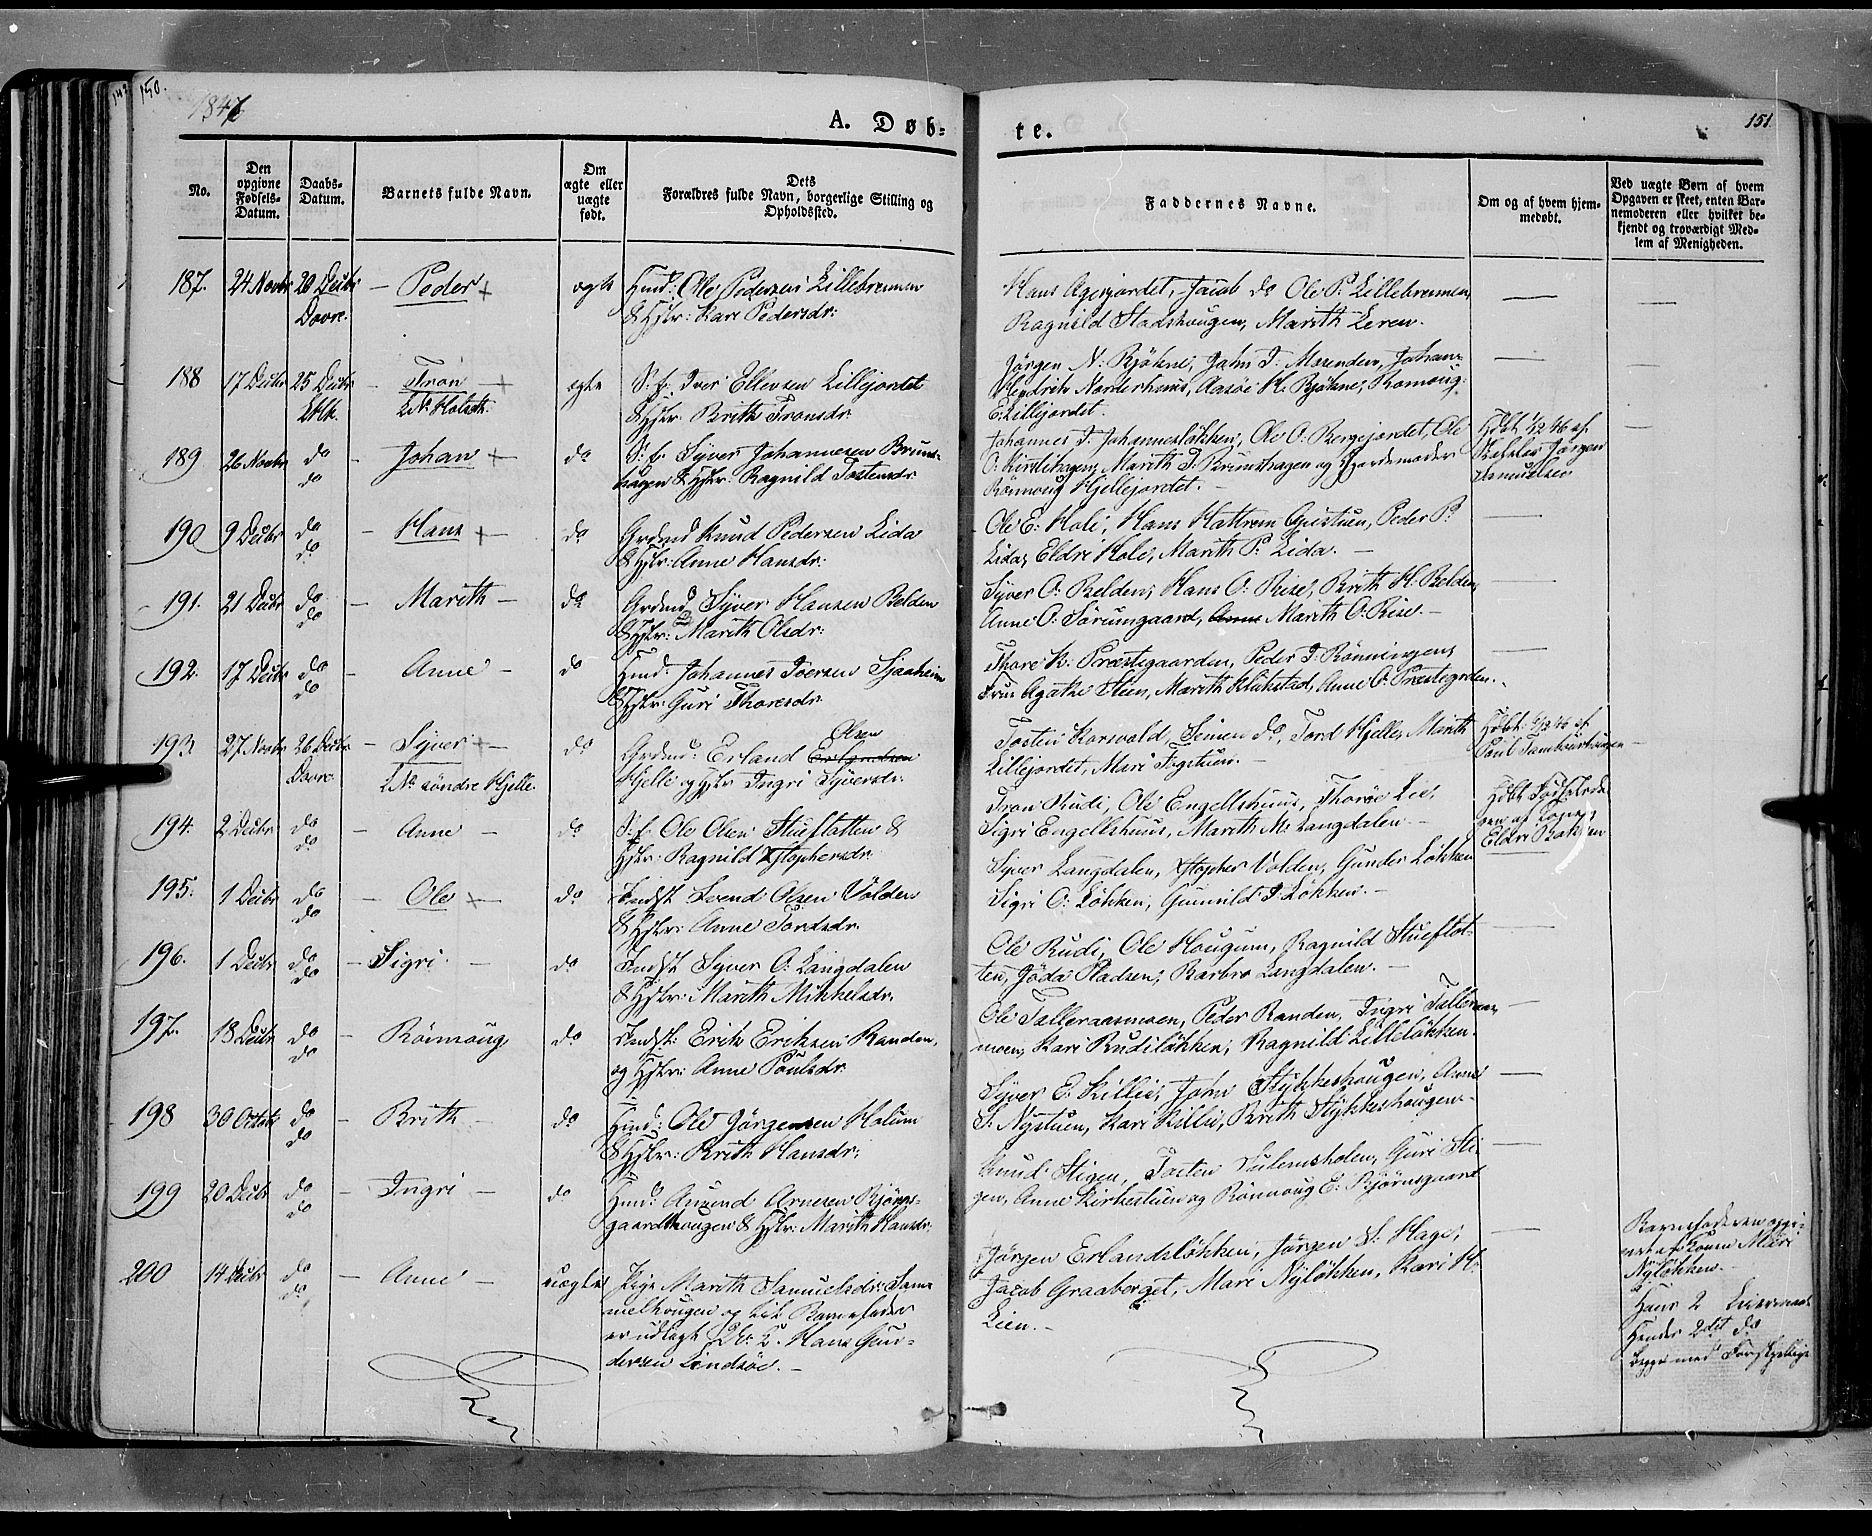 150.
151.
1846
A. Døb-
te.
No.
Den opgivne Fødsels-Datum.
Daabs-Datum.
Barnets fulde Navn.
Om ægte eller uægte født.
Dets Forældres fulde Navn, borgerlige Stilling og Opholdssted.
Faddernes Navne.
Om og af hvem hjem-medøbt.
Ved uægte Børn af hvem Opgaven er skeet, enten Bar-nemoderen eller hvilket be-kjendt og troværdigt Med-lem af Menigheden.
187. 24 Novbr 20 Decbr - Peder + ægte Hmd: Ole Pedersen Lillebrennen
Dovre. & Hstr: Kari Pedersdr:
Hans Jacob do Ole P. Lillebrennen,
Ragnild Stadshougen, Marith Leren.
188 17 Decbr 25 Decbr - Tron + ægte S. f. Iver Ellevsen Lillejordet
& Hstr: Brith Tronsdr.
Jørgen N. Bjøkne, John I.
Bjøkne, Romoug
E. Lillejordet.
189 26 Novbr do - Johan + do S. f. Syver Johannesen Bruns-
do hagen & Hstr: Ragnild Tostensdr.
Johannes I. Johannesløkken, Ole O. Bergejordet, Ole
O. Kirstihagen, Marith I. Brunshagen og Gjordemoder
Rönnoug Hjellejordet.
Hdbt af
Jørgen
190 9 Decbr do - Hans + do Grdmd Knud Pedersen Lida
do & Hstr: Anne Hansdr:
Ole E. Hole, Hans Peder P.
Lida, Eldre Hole, Marith P. Lida.
191. 21 Decbr do - Marith - do Grdmd Syver Hansen Belden
do & Hstr: Marith Olsdr:
Syver O. Belden, Hans O. Rise, Brith H. Belden,
Anne O. Sørumgaard, Anne Marith O. Rise.
192. 17 Decbr do - Anne - do Hmd: Johannes Iversen Sjaaheim
do & Hstr: Guri Thoresdr:
Thore K. Præstegaarden, Peder I. Rönningen,
Fru Agathe Steen, Marith Klukstad, Anne O. Præstegrden.
193 27 Novbr 26 Decbr - Syver + do Grdmd: Erland Erlandsen Olsen
Dovre. søndre Hjelle. Hjelle og Hstr Ingri Syversdr.
Tosten Korsvold, Simen do, Tord Hjelle, Marith
Lillejordet, Mari Tigstuen.
Hdbt: af
Poul
194. 2 Decbr do - Anne - do S. f. Ole Olsen Stueflotten &
do Hstr: Ragnild Xstophersdr.
Tron Rudi, Ole Engellshuus, Thorøe Lie,
Sigri Engellshuus, Marith M. Langdalen.
Hdbt
af
Eldri Bakken
195. 1 Decbr do - Ole + do Indst Svend Olsen Volden
do & Hstr: Anne Tordsdr.
Syver Langdalen, Xstopher Volden, Gunder Løkken
Sigri O. Løkken, Gunnild I. Løkken.
196. 1 Decbr do - Sigri - do Indst Syver O. Langdalen
do & Hstr: Marith Mikkelsdr.
Ole Rudi, Ole Hougum, Ragnild Stueflot-
ten, Jøda Pladsen, Barbro Langdalen.
197. 18 Decbr do - Rönnoug do Indst: Erik Eriksen Randen,
do og Hstr: Anne Poulsdr.
Ole Talleraasmoen, Peder Randen, Ingri Talleraas-
moen, Kari Rudiløkken, Ragnild Lilleløkken.
198 30 Octobr do - Brith - do Hmd: Ole Jørgensen Holum
do & Hstr: Brith Hansdr:
Syver E. Killie, John Stykkeshougen, Anne
S. Nystuen, Kari Killie, Brith Stykkeshougen.
199 20 Decbr do - Ingri - do Hmd: Amund Arnesen Bjørns-
do gaardhougen & Hstr: Marith Hansdr.
Knud Stigen, Tosten Guri Sti-
gen, Anne Kirkestuen og Rönnoug E. Bjørnsgaard
200 14 Decbr do - Anne - uægte Pige Marith Samuelsdr: Sam-
do melhougen og til Barnefader
er udlagt Hans Gun-
dersen Lindsøe.
Jørgen Erlandsløkken, Jørgen S. Hage,
Jacob Graaberget, Mari Nyløkken, Kari H.
Lien.
Barnefaderen opgi-
vet af Konen Mari
Nyløkken.
Hans 2 Leiermaal
Hendes 2det do
begge med forskjellige